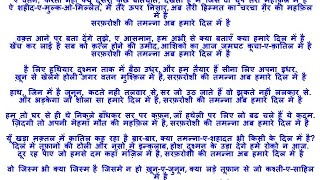 ऐ वतन, करता नहीं क्यूँ दूसरा कुछ बातचीत, देखता हूँ मैं जिसे वो चुप तेरी महफ़िल में है
ऐ शहीद-ए-मुल्क-ओ-मिल्लत, मैं तेरे ऊपर निसार, अब तेरी हिम्मत का चरचा ग़ैर की महफ़िल में है
सरफ़रोशी की तमन्ना अब हमारे दिल में है
वक्त आने पर बता देंगे तुझे, ए आसमान, हम अभी से क्या बताएँ क्या हमारे दिल में है
खेंच कर लाई है सब को कत्ल होने की उमीद, आशिकों का आज जमघट कूचा-ए-कातिल में है
सरफ़रोशी की तमन्ना अब हमारे दिल में है
है लिए हथियार दुश्मन ताक में बैठा उधर, और हम तैयार हैं सीना लिए अपना इधर.
खून से खेलेंगे होली अगर वतन मुश्किल में है, सरफ़रोशी की तमन्ना अब हमारे दिल में है
हाथ, जिन में है जूनून, कटते नही तलवार से, सर जो उठ जाते हैं वो झुकते नहीं ललकार से.
और भड़केगा जो शोला सा हमारे दिल में है, सरफ़रोशी की तमन्ना अब हमारे दिल में है
हम तो घर से ही थे निकले बाँधकर सर पर कफ़न, जाँ हथेली पर लिए लो बढ चले हैं ये कदम.
जिंदगी तो अपनी मेहमां मौत की महफ़िल में है, सरफ़रोशी की तमन्ना अब हमारे दिल में है
यूँ खड़ा मक़्तल में कातिल कह रहा है बार-बार, क्या तमन्ना-ए-शहादत भी किसी के दिल में है?
दिल में तूफ़ानों की टोली और नसों में इन्कलाब, होश दुश्मन के उड़ा देंगे हमें रोको न आज.
दूर रह पाए जो हमसे दम कहाँ मंज़िल में है, सरफ़रोशी की तमन्ना अब हमारे दिल में है
वो जिस्म भी क्या जिस्म है जिसमे न हो खून-ए-जुनून, क्या लड़े तूफ़ान से जो कश्ती-ए-साहिल में है